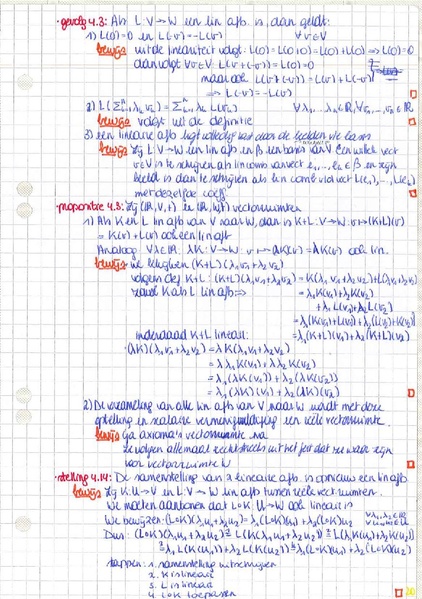 • gevolg 4.3: Als L: V→W een lin afb. is, dan geldt:
1) L(0) = 0 en L(-v) = -L(v) ∀v∈V
bewijs uit de lineariteit volgt: L(0) = L(0+0) = L(0) + L(0) ⇒ L(0) = 0
dan volgt ∀v∈V: L(v+(-v)) = L(0) = 0
maar ook L(v+(-v)) = L(v) + L(-v)
⇒ L(-v) = -L(v)
2) L(∑ λi vi) = ∑ λi L(vi) ∀λ1,...,λn∈ℝ, ∀v1,...,vn∈V
bewijs volgt uit de definitie
3) een lineaire afb ligt volledig vast door de beelden vd basis
bewijs Zij L: V→W een lin afb en β een basis van V. Een willek vect
v∈V is te schrijven als lin comb van vect e1,...,en∈β en zijn
beeld is dan te schrijven als lin comb vd vect L(e1),...,L(en)
met dezelfde coeff.
• propositie 4.3: Zij (ℝ,V,+) en (ℝ,W,+) vectorruimten
1) Als K en L lin afb van V naar W, dan is K+L: V→W: v↦(K+L)(v)
= K(v) + L(v) ook een lin afb
Analoog ∀λ∈ℝ: λK: V→W: v↦(λK)(v) = λK(v) ook lin.
bewijs we bekijken (K+L)(λ1v1+λ2v2)
volgens def K+L: (K+L)(λ1v1+λ2v2) = K(λ1v1+λ2v2) + L(λ1v1+λ2v2)
zowel K als L lin afb ⇒ = λ1K(v1) + λ2K(v2)
+ λ1L(v1) + λ2L(v2)
= λ1(K(v1)+L(v1)) + λ2(L(v2)+K(v2))
inderdaad K+L lineair: = λ1(K+L)(v1) + λ2(K+L)(v2)
• (λK)(λ1v1+λ2v2) = λK(λ1v1+λ2v2)
= λλ1K(v1) + λλ2K(v2)
= λ1(λK(v1)) + λ2(λK(v2))
= λ1(λK)(v1) + λ2(λK)(v2)
2) De verzameling van alle lin afb van V naar W wordt met deze
optelling en scalaire vermenigvuldiging een reële vectorruimte.
bewijs ga axioma's vectorruimte na
ze volgen allemaal rechtstreeks uit het feit dat ze waar zijn
voor vectorruimte W
• stelling 4.14: De samenstelling van 2 lineaire afb. is opnieuw een lin afb
bewijs Zij K: U→V en L: V→W lin afb tussen reële vect ruimten.
We moeten aantonen dat L∘K: U→W ook lineair is
We bewijzen: (L∘K)(λ1u1+λ2u2) = λ1(L∘K)u1 + λ2(L∘K)u2 ∀λ1,λ2∈ℝ ∀u1,u2∈U
Dus: (L∘K)(λ1u1+λ2u2) = L(K(λ1u1+λ2u2)) = L(λ1K(u1)+λ2K(u2))
= λ1L(K(u1)) + λ2L(K(u2)) = λ1(L∘K)(u1) + λ2(L∘K)(u2)
stappen: 1. samenstelling uitschrijven
2. K is lineair
3. L is lineair
4. L∘K toepassen
20